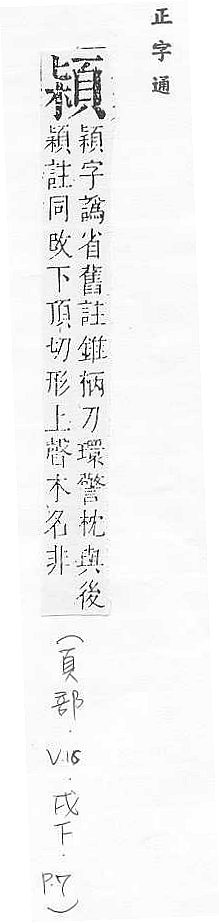 正字通
穎字譌省舊註錐柄刀環警枕與後
穎註同改下頂切形上聲木名非
(頁部．V.16．戌下．P.7)